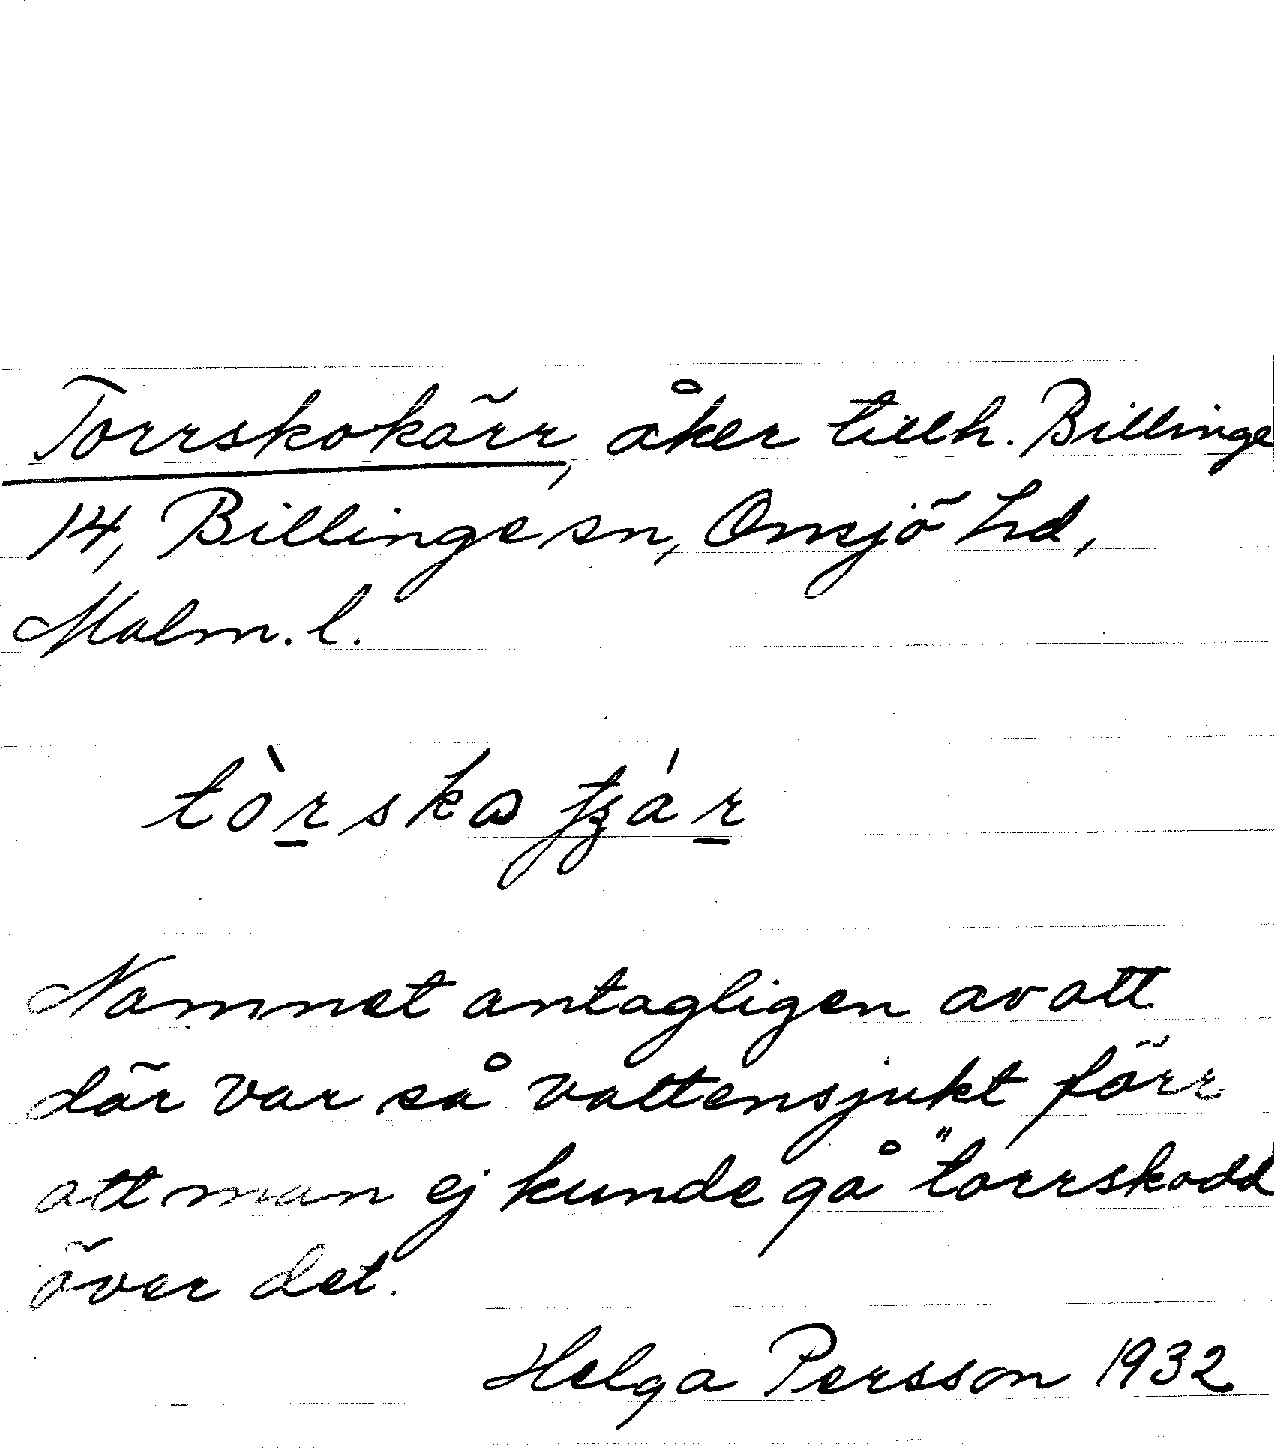 Torrskokärr, åker tillh. Billinge
14, Billinge sn, Onsjö hd,
Malm. l.
Namnet antagligen av att
där var så vattensjukt förr
att man ej kunde gå "torrskodd
över det.
Helga Persson 1932